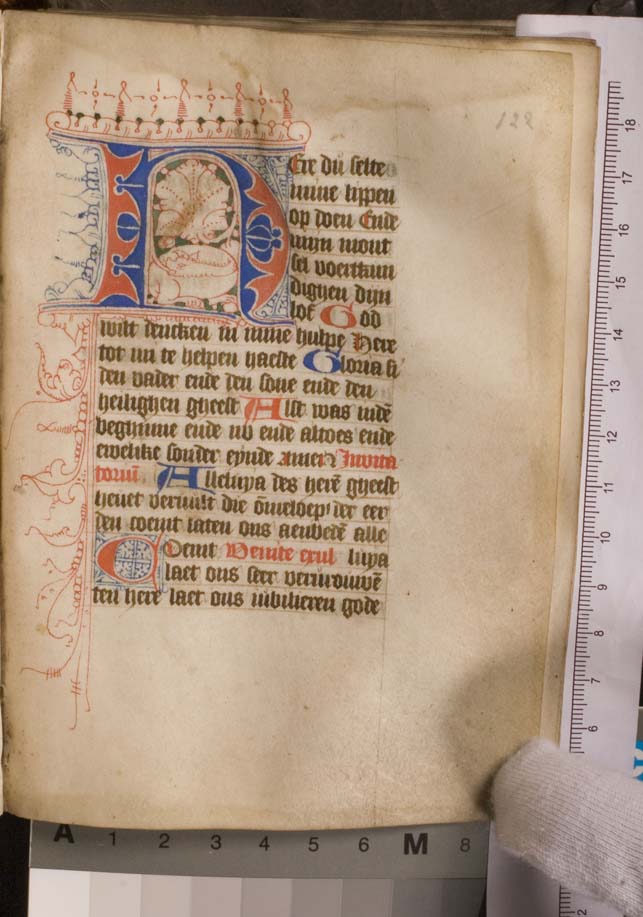 122
Here du selte
mine lippen
op doen Ende
mijn mont
sel voertkun
dighen dijn
lof God
wilt dencken in mine hulpe Here
tot mi te helpen haeste Gloria si
den vader ende den sone ende den
heilighen gheest Alst was indē
beghinne ende nv ende altoes ende
ewelike sonder eynde amen Invita
toriū Alleluya des herē gheest
heuet veruult die ōmeloep der eer
den coemt laten ons aenbedē alle
Coemt Venite exul luya
laet ons seer vervrouwē
ten here laet ons iubilieren gode
18
17
16
15
14
13
12
11
10
9
8
7
6
2
A 1 2 3 4 5 6 M 8